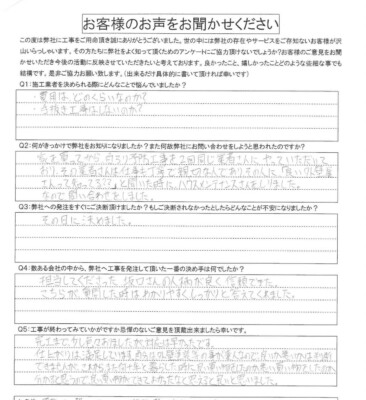 お客様のお声をお聞かせください
この度は弊社に工事をご用命頂き誠にありがとうございました。世の中には弊社の存在やサービスをご存知ないお客様が沢
山いらっしゃいます。その方たちに弊社をよく知って頂くためのアンケートにご協力頂けないでしょうか?お客様のご意見をお聞
かせいただき今後の活動に反映させていただきたいと考えております。良かったこと、嬉しかったことどのような些細な事でも
結構です。是非ご協力お願い致します。(出来るだけ具体的に書いて頂ければ幸いです)
Q1:施工業者を決められる際にどんなことで悩んでいましたか?
・費用は、どのくらいなのか?
・手抜き工事はしないのか?
Q2:何がきっかけで弊社をお知りになりましたか?また何故弊社にお問い合わせをしようと思われたのですか?
家を買ってから、白アリ予防工事を2回同じ業者さんに やっていただいて
おり、その業者さんは仕事も丁寧で親切な人でありその人に「良い外壁屋
さんって知ってる??」と聞いた時に、ハウスメンテナンスさんをしりました。
なので問い合わせをしました。
Q3:弊社への発注をすぐにご決断頂けましたか?もしご決断されなかったとしたらどんなことが不安になりましたか?
その日に決めました。
Q4:数ある会社の中から、弊社へ工事を発注して頂いた一番の決め手は何でしたか?
担当してくださった 坂口さんの人柄が良く信頼できた。
こちらが、質問した時は わかりやすくしっかりと答えてくれました。
Q5:工事が終わってみていかがですか忌憚のないご意見を頂戴出来ましたら幸いです。
完工まで少し見ておりましたが、対応は早かったです。
仕上がりは満足しています。